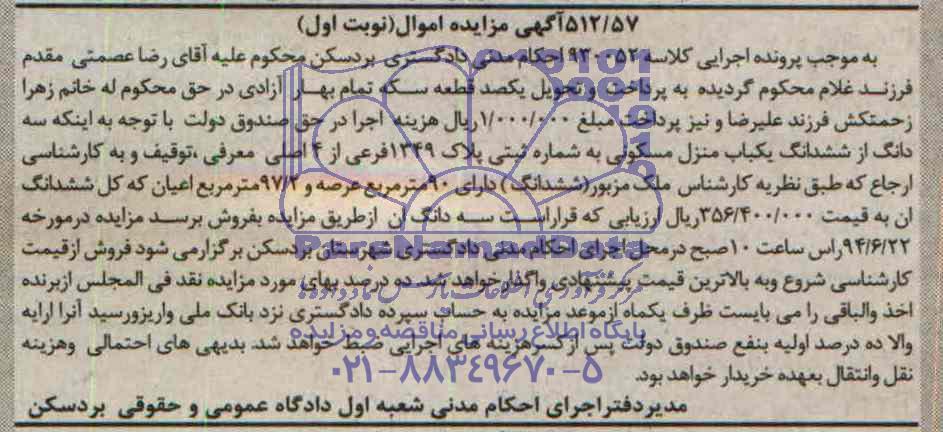 ۵۱۲/۵۷آگهی مزایده اموال(نوبت اول)
به موجب پرونده اجرایی کلاسه ۹۳۰۰۵۲ احکام مدنی دادگستری بردسکن محکوم علیه آقای رضا عصمتی مقدم
فرزند غلام محکوم گردیده به پرداخت وتحویل یکصد قطعه سکه تمام بهار آزادی در حق محکوم له خانم زهرا
زحمتکش فرزند علیرضا و نیز پرداخت مبلغ ۱/۰۰۰/۰۰۰ریال هزینه اجرا در حق صندوق دولت با توجه به اینکه سه
دانگ از ششدانگ یکباب منزل مسکونی به شماره ثبتی پلاک ۱۳۴۹فرعی از ۴ اصلی معرفی ،توقیف و به کارشناسی
ارجاع که طبق نظریه کارشناس ملک مزبور(ششدانگ) دارای ۹۰مترمربع عرصه و ۹۷/۲مترمربع اعیان که کل ششدانگ
ان به قیمت ۳۵۶/۴۰۰/۰۰۰ریال ارزیابی که قراراست سه دانگ ان ازطریق مزایده بفروش برسد مزایده درمورخه
۹۴/۶/۲۲راس ساعت ۱۰صبح درمحل اجرای احکام مدنی دادگستری شهرستان بردسکن برگزارمی شود فروش ازقیمت
کارشناسی شروع وبه بالاترین قیمت پیشنهادی واگذارخواهد شد. ده درصد بهای مورد مزایده نقد فی المجلس ازبرنده
اخذ والباقی را می بایست ظرف یکماه ازموعد مزایده به حساب سپرده دادگستری نزد بانک ملی واریزورسید آنرا ارایه
والا ده درصد اولیه بنفع صندوق دولت پس از کسرهزینه های اجرایی ضبط خواهد شد. بدیهی های احتمالی وهزینه
نقل وانتقال بعهده خریدار خواهد بود.
مدیردفتراجرای احکام مدنی شعبه اول دادگاه عمومی و حقوقی بردسکن
ParsNamadData
پایگاه اطلاع رسانی مناقصه و مزایده
۰۲۱-۸۸۳۴۹۶۷۰-۵